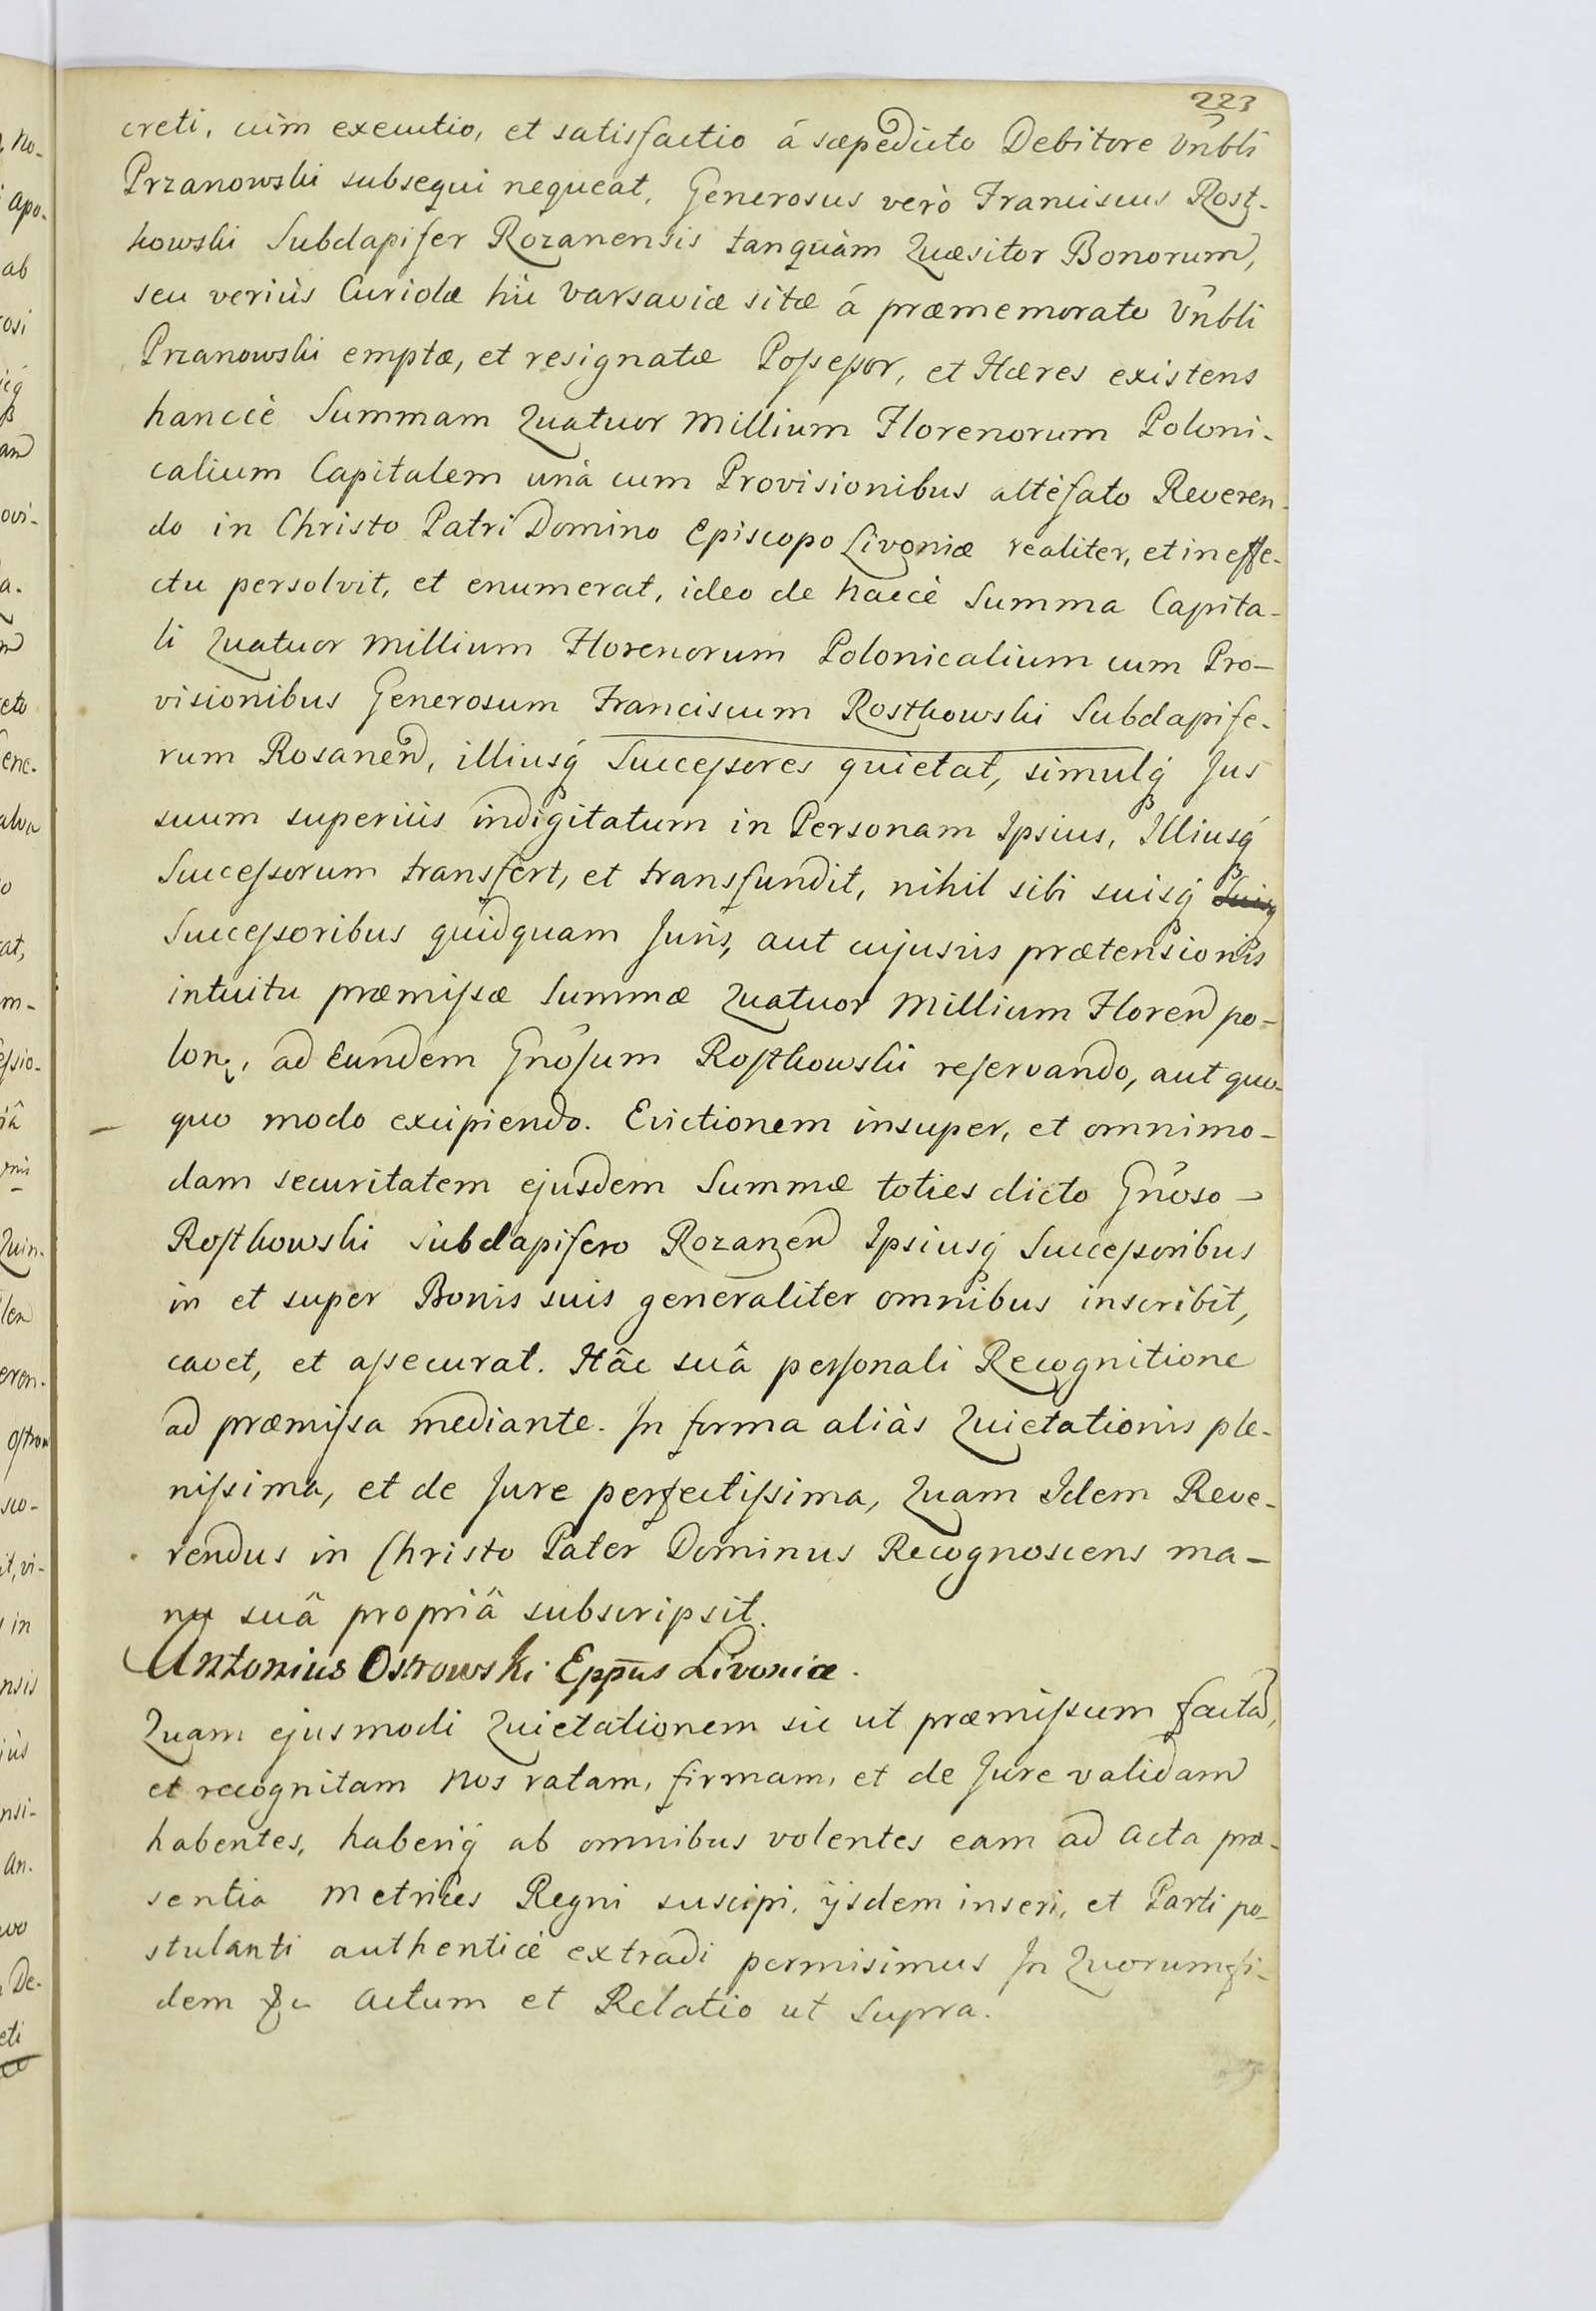 223
creti, cùm executio, et satisfactio á sæpedicto Debitore Vnbli
Przanowski subsequi nequeat, Generosus verò Franciscus Rost-
kowski Subdapifer Rozanensis tanquàm Quæsitor Bonorum,
seu veriùs Curiolæ hic Varsaviæ sitæ á præmemorato Vnbli
Przanowski emptæ, et resignatæ Poſseſsor, et Hæres existens
hancce Summam Quatuor Millium Florenorum Poloni-
calium Capitalem unà cum Provisionibus altèfato Reveren-
do in Christo Patri Domino Episcopo Livoniæ realiter, et in effe-
ctu persolvit, et enumerat, ideo de hacce Summa Capita-
li Quatuor Millium Florenorum Polonicalium cum Pro-
visionibus Generosum Franciscum Rostkowski Subdapife-
rum Rosanen, illiusq́ Succeſsores quietat, simulq́ Jus
suum superiùs indigitatum in Personam Ipsius, Illiusq́
Succeſsorum transfert, et transfundit, nihil sibi suisq́ suisq
Succeſsoribus quidquam Juris, aut cujusvis prætensionis
intuitu præmiſsæ Summæ Quatuor Millium Floren po-
lon, ad Eundem Gnõſum Roſtkowski reſervando, aut quo-
quo modo excipiendo. Evictionem insuper, et omnimo-
dam securitatem ejusdem Summæ toties dicto Gnõso
Roſtkowski Subdapifero Rozanen Ipsiusq́ Succeſsoribus
in et super Bonis suis generaliter omnibus inscribit,
cavet, et aſsecurat. Hâc suâ perſonali Recognitione
ad præmiſsa mediante. In forma aliàs Quietationis ple-
niſsima, et de Jure perfectiſsima, Quam Idem Reve-
rendus in Christo Pater Dominus Recognoscens ma-
nu suâ propriâ subscripsit.
Antonius Ostrowski Eppus Livoniæ.
Quam ejusmodi Quietationem sic ut præmiſsum facta,
et recognitam Nos ratam, firmam, et de Jure validam
habentes, haberiq́ ab omnibus volentes eam ad Acta præ-
sentia Metrices Regni suscipi, ijsdem inseri, et Parti po-
stulanti authenticè extradi permisimus In Quorum fi-
dem &c Actum et Relatio ut Supra.